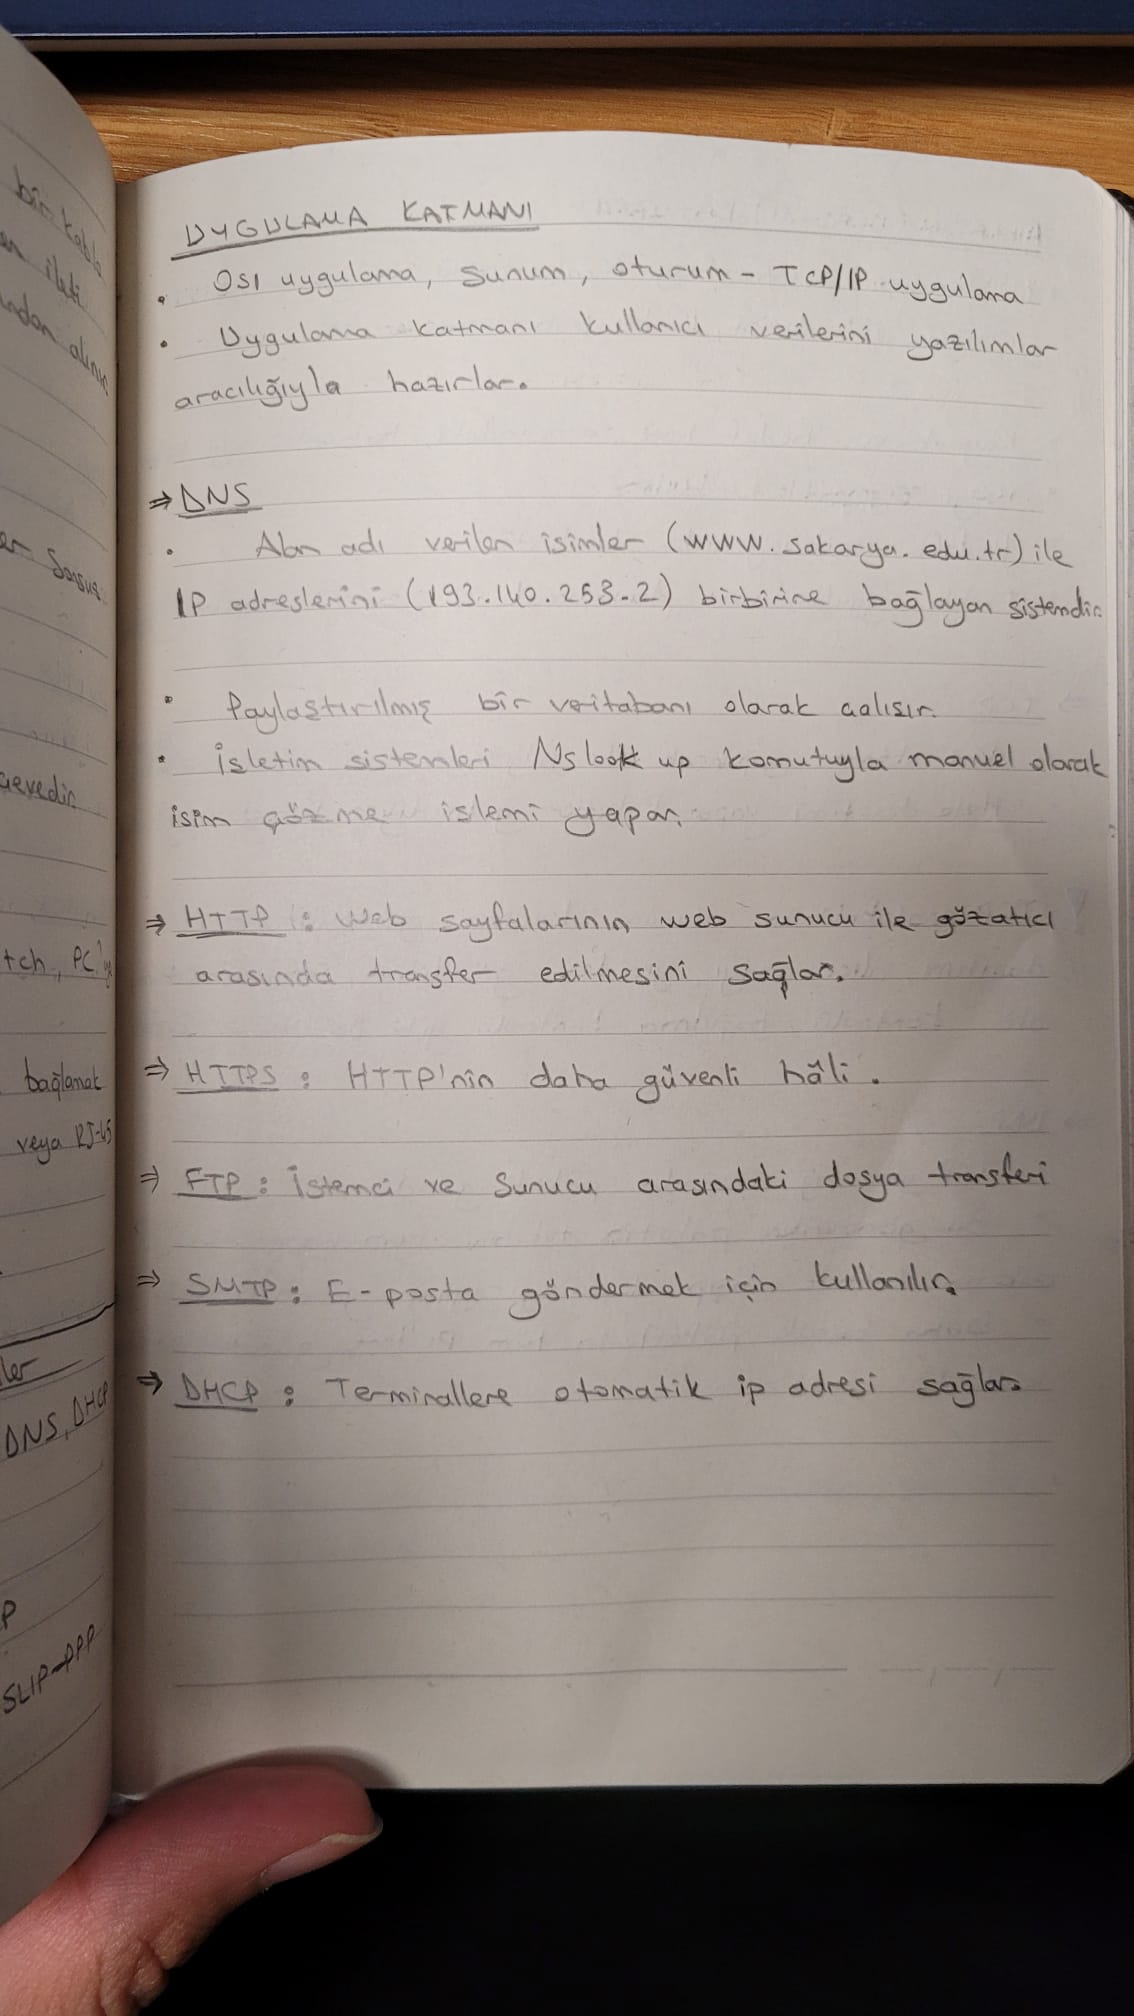 bir kablo
ileti
ından alınıc
çevedir
tch, PC'
bağlamak
veya RJ-45
ler
DNS, DHCP
P
SLIP-PPP
UYGULAMA KATMANI
• OSI uygulama, sunum, oturum - TCP/IP uygulama
• Uygulama katmanı kullanıcı verilerini yazılımlar
aracılığıyla hazırlar.
⇒ DNS
• Alan adı verilen isimler (www.sakarya.edu.tr) ile
IP adreslerini (193.140.253.2) birbirine bağlayan sistemdir.
• Paylaştırılmış bir veritabanı olarak çalışır.
• İşletim sistemleri Nslook up komutuyla manuel olarak
isim çözme işlemi yapar.
⇒ HTTP : Web sayfalarının web sunucu ile gözatıcı
arasında transfer edilmesini sağlar.
⇒ HTTPS : HTTP'nin daha güvenli hâli.
⇒ FTP : İstemci ve Sunucu arasındaki dosya transferi
⇒ SMTP : E-posta göndermek için kullanılır.
⇒ DHCP : Terminallere otomatik ip adresi sağlar.